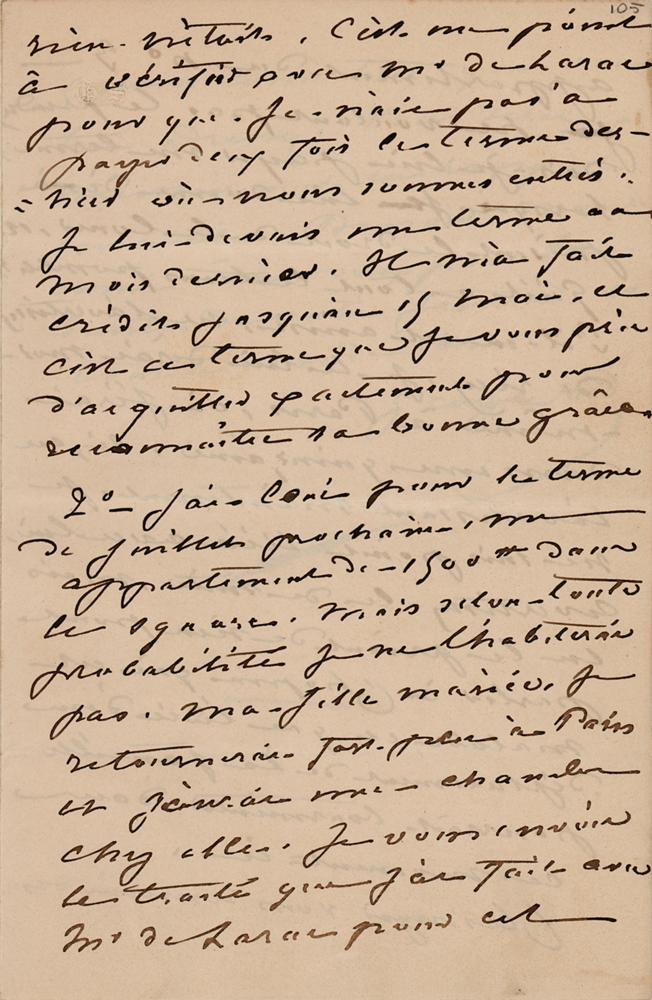 105
rien n'était. C'est un point
à vérifier avec Mr de Larac
pour que je n'aie pas à
payer deux fois le terme der-
=nier où nous sommes entrés.
Je lui devais un terme au
mois dernier. Il m'a fait
crédit jusqu'au 15 mai, et
c'est ce terme que je vous prie
d'acquitter exactement pour
reconnaître sa bonne grâce.
2o J'ai loué pour le terme
de juillet prochain, un
appartement de 1500 m dans
le square. Mais selon toute
probabilité je ne l'habiterai
pas. Ma fille mariée, je
retournerai fort peu à Paris
et j'aurai une chambre
chez elle. Je vous envoie
le traité que j'ai fait avec
Mr de Larac pour cet